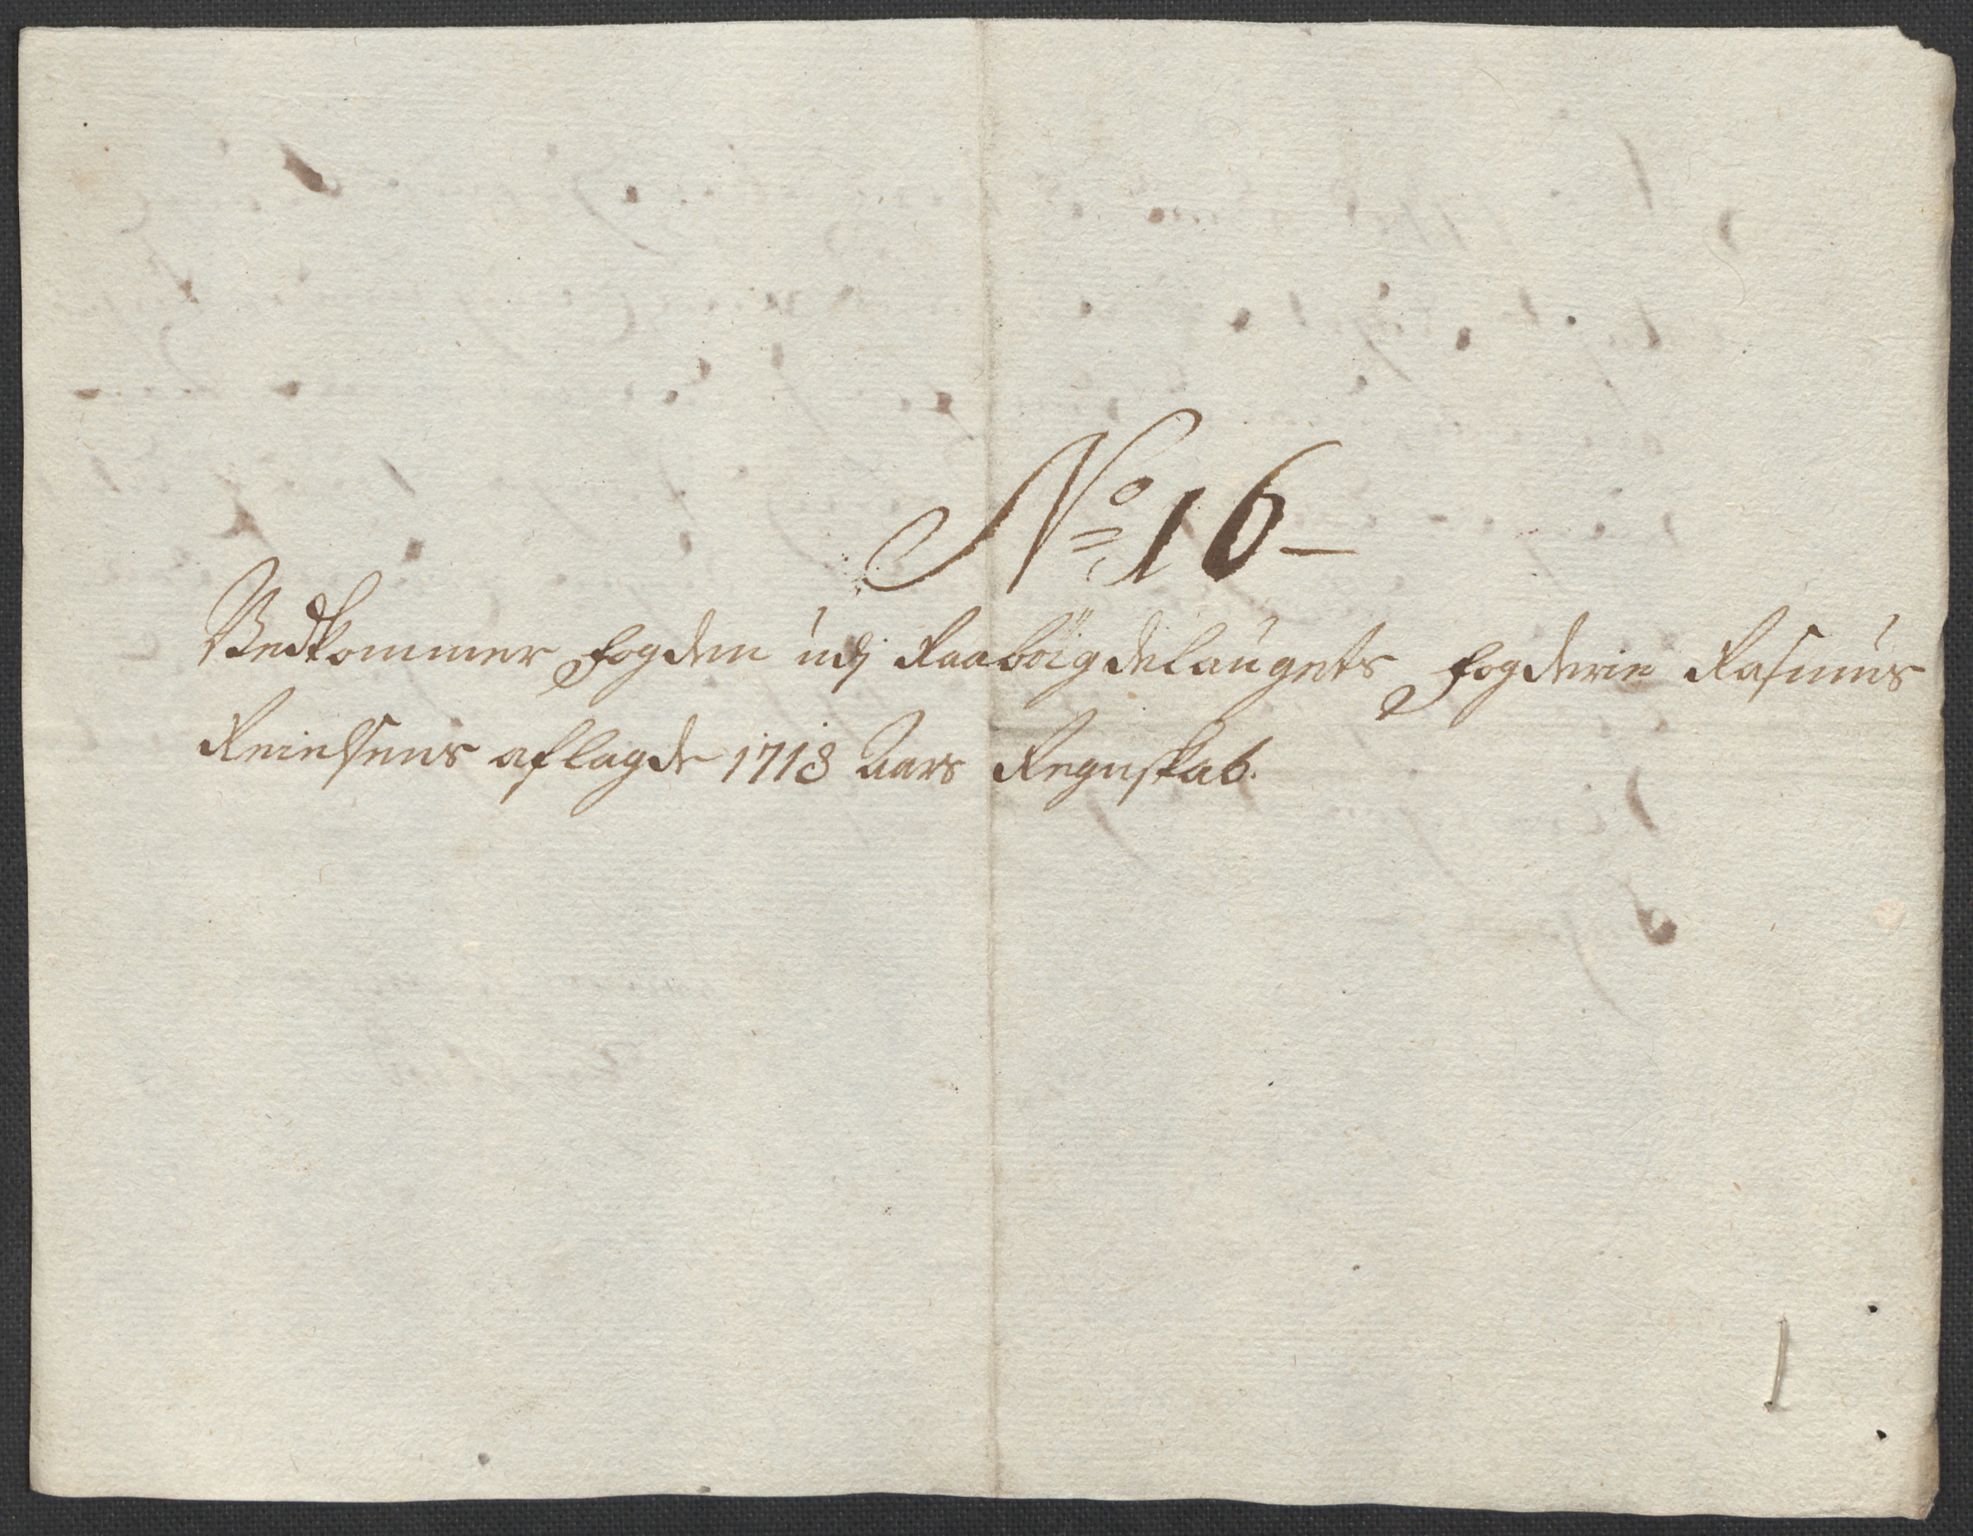 No 16-
Vedkommer Fogden udj Raabøigdelaugets Fogderie Rasmus
Reiersens aflagde 1718 Aars Regnskab.